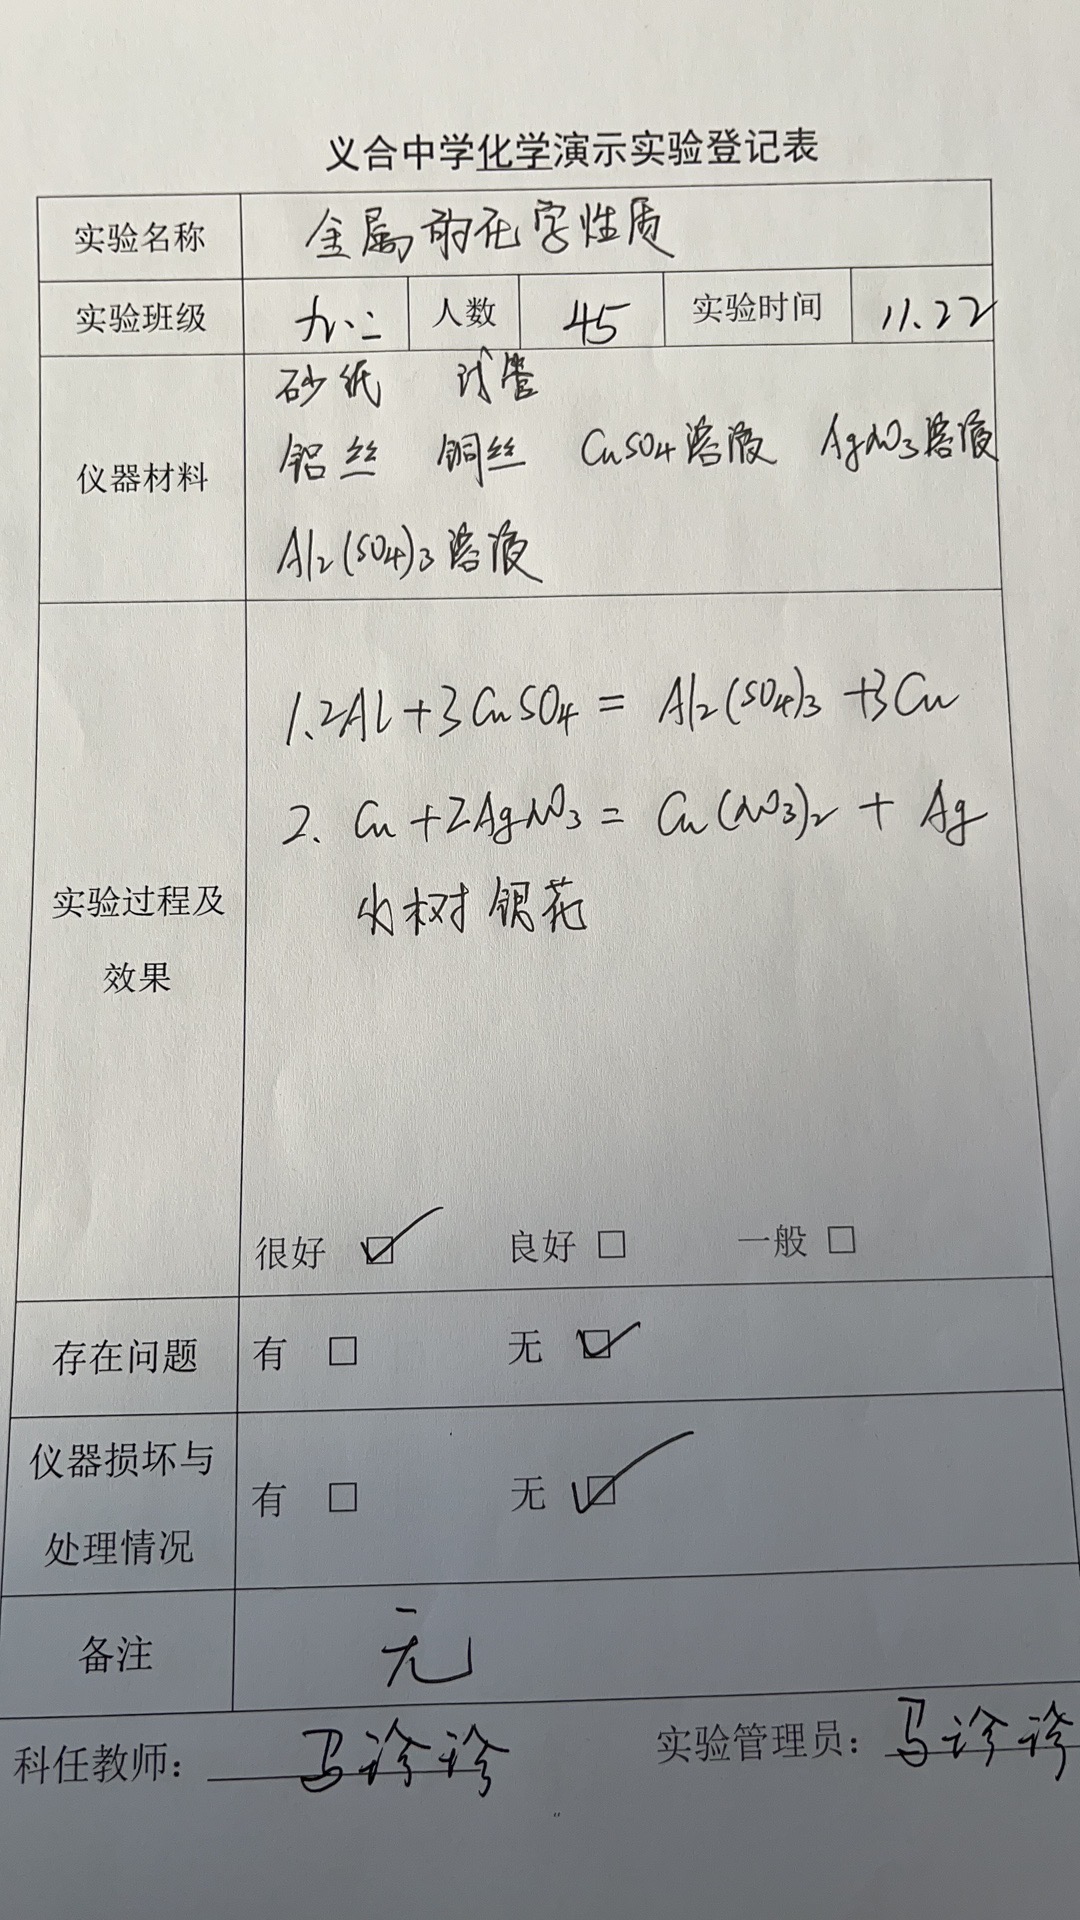 义合中学化学演示实验登记表
实验名称 金属的化学性质
实验班级 九.二 人数 45 实验时间 11.22
砂纸 试管
仪器材料 铝丝 铜丝 CuSO4溶液 AgNO3溶液
Al2(SO4)3溶液
1.2Al+3CuSO4=Al2(SO4)3+3Cu
2. Cu+2AgNO3=Cu(NO3)2+Ag
实验过程及 火树银花
效果
很好 ☑ 良好 □ 一般 □
存在问题 有 □ 无 ☑
仪器损坏与
有 □ 无 ☑
处理情况
备注 无
科任教师: 马诊诊 实验管理员: 马诊诊